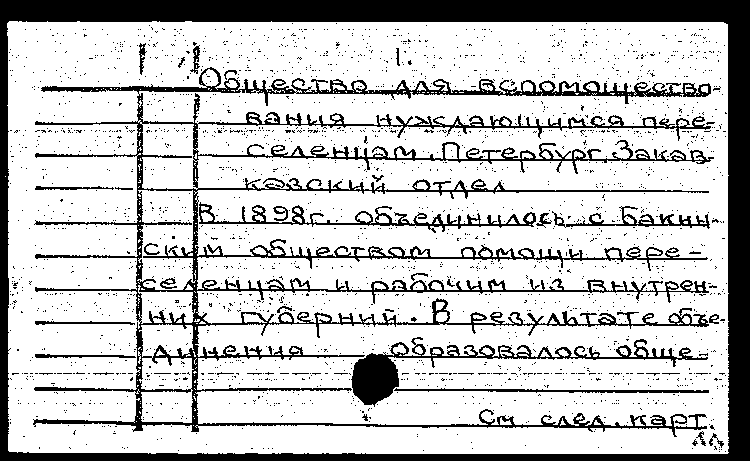 1.
Общество для вспомощество-
вания нуждающимся пере-
селенцам. Петербург. Закав-
казский отдел.
В 1898г. объединилось с Бакин-
ским обществом помощи пере-
селенцам и рабочим из внутрен-
них губерний. В результате объе-
динения образовалось обще-
См след. карт.